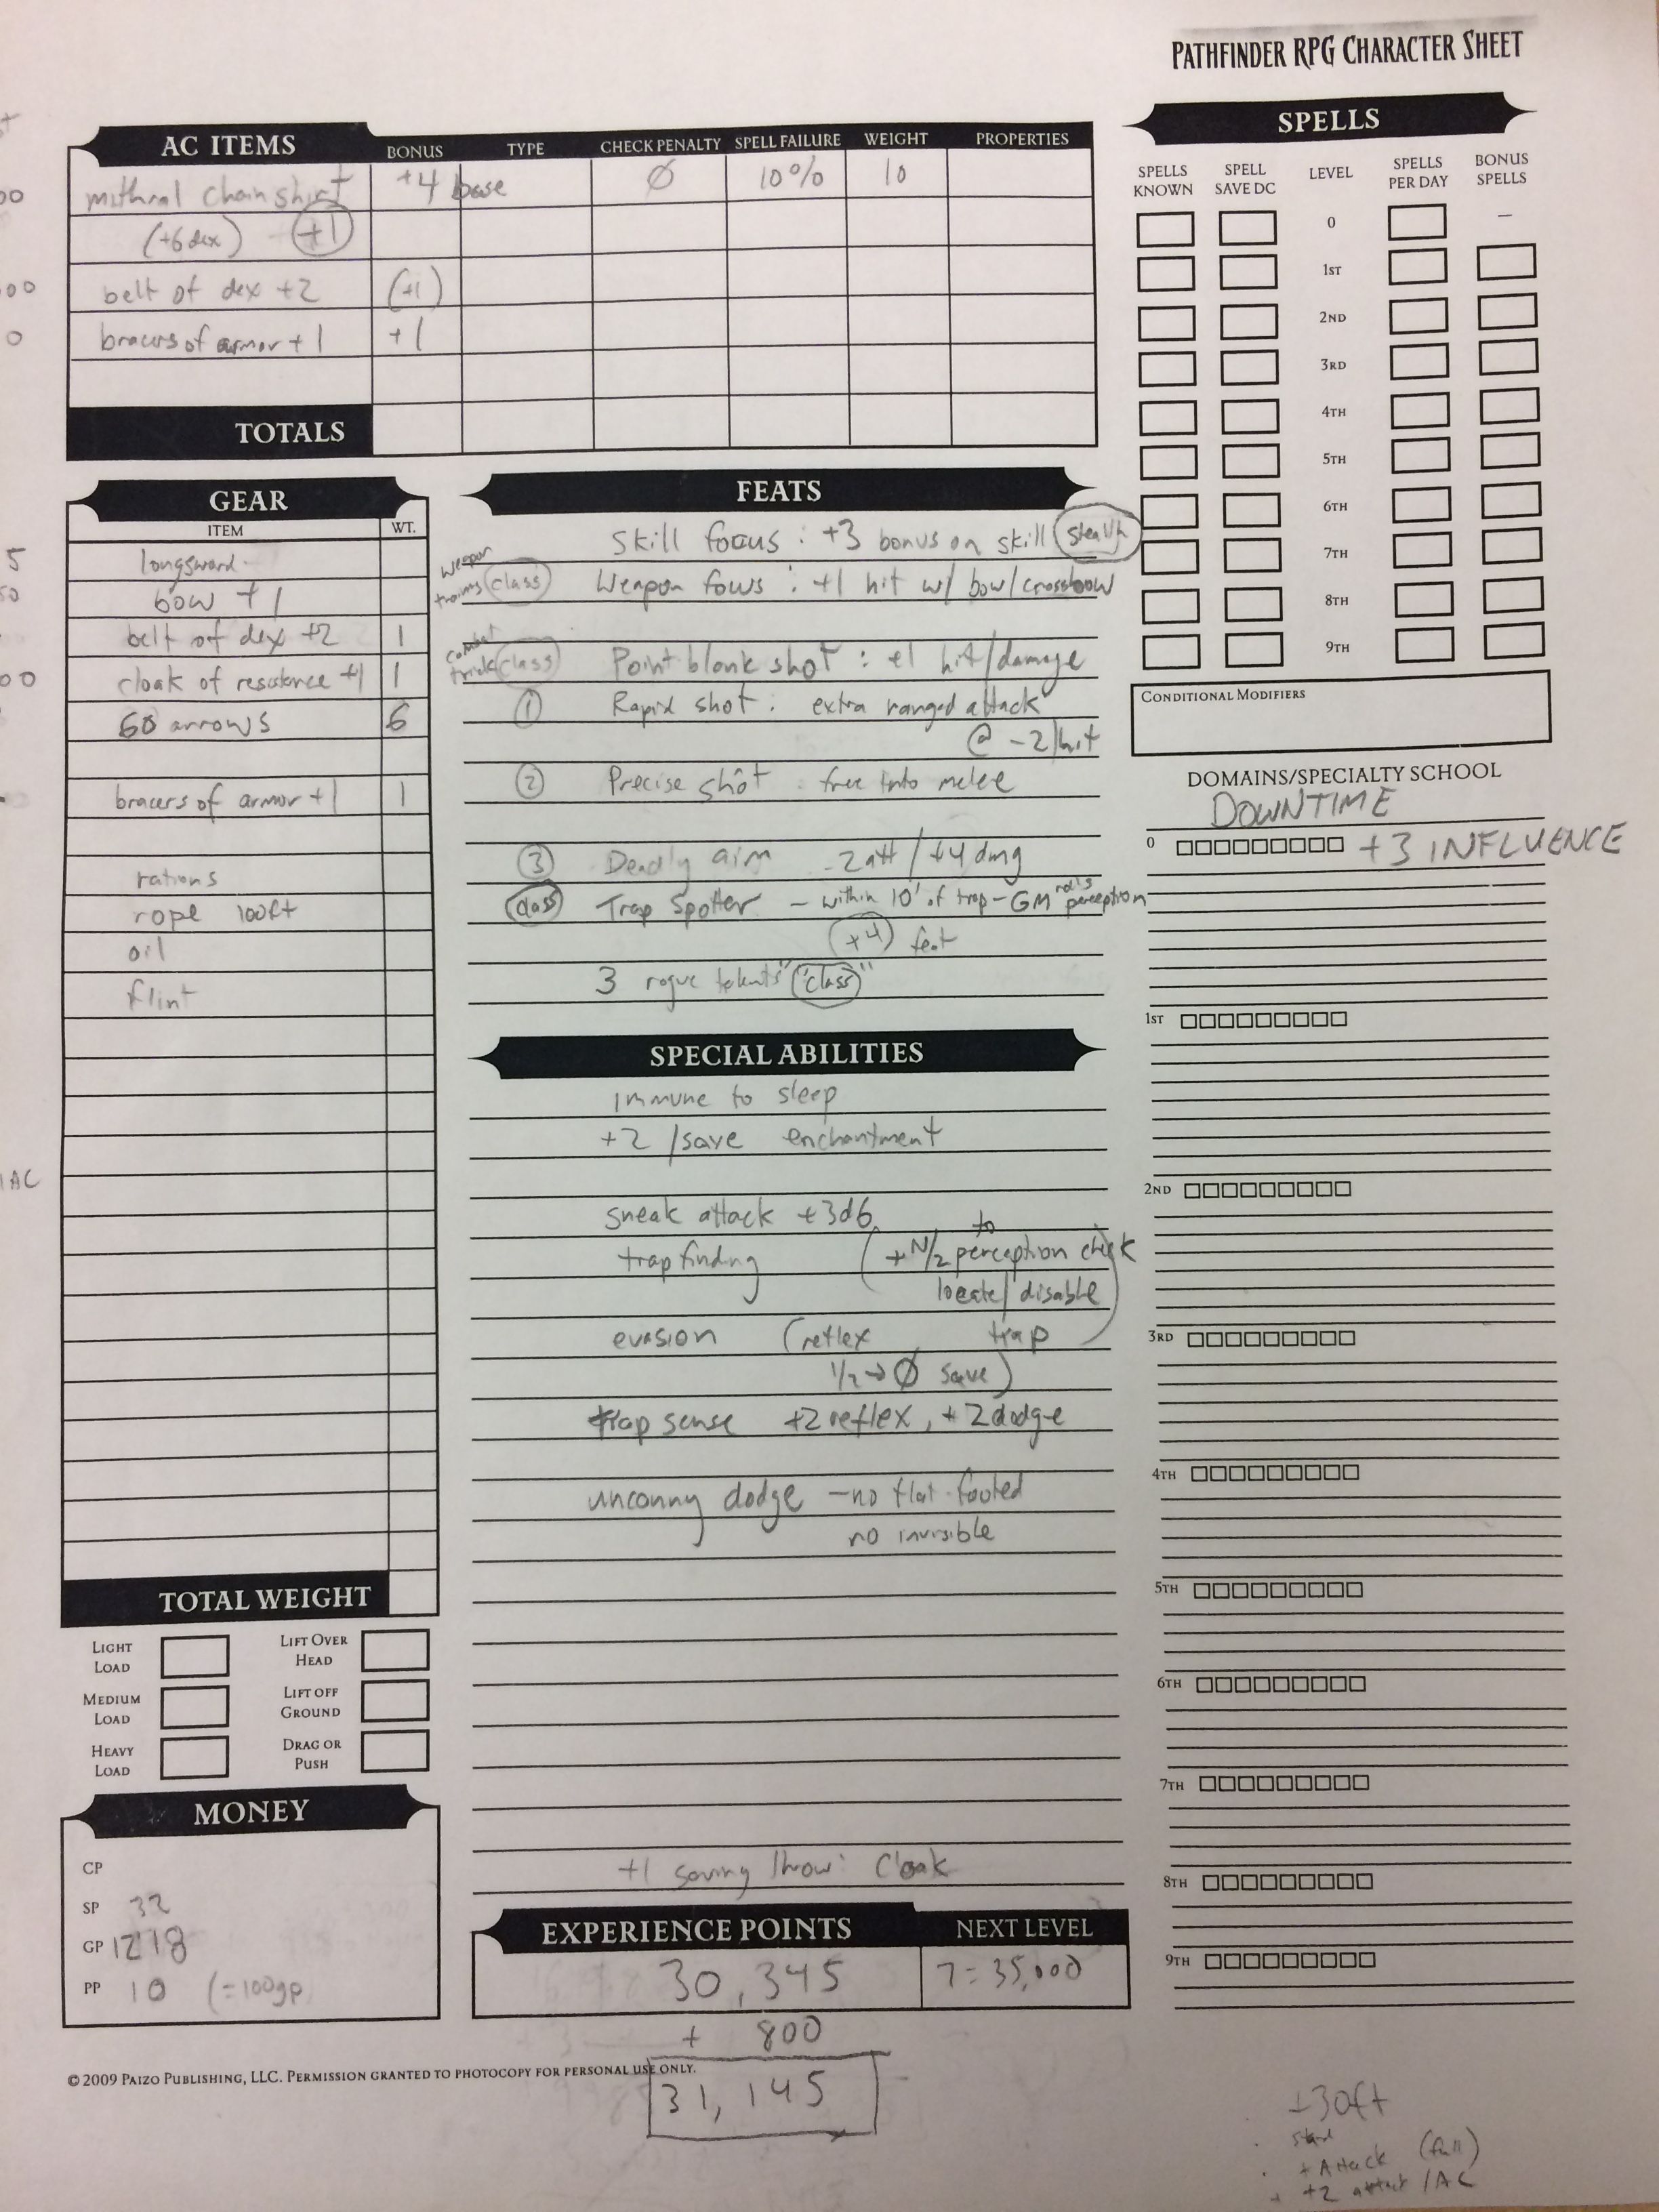 PATHFINDER RPG CHARACTER SHEET
AC ITEMS BONUS TYPE CHECK PENALTY SPELL FAILURE WEIGHT PROPERTIES
mithral chain shirt +4 base Ø 10% 10
(+6 dex) +1
belt of dex +2 (+1)
bracers of armor +1 +1
TOTALS
GEAR
ITEM WT.
longsword
bow +1
belt of dex +2 1
cloak of resistence +1 1
60 arrows 6
bracers of armor +1 1
rations
rope 100ft
oil
flint
TOTAL WEIGHT
LIGHT LOAD LIFT OVER HEAD
MEDIUM LOAD LIFT OFF GROUND
HEAVY LOAD DRAG OR PUSH
MONEY
CP
SP 32
GP 1218
PP 10 (=100gp
FEATS
skill focus : +3 bonus on skill stealth
weapon
class Weapon focus : +1 hit w/ bow/crossbow
combat
trick class Point blank shot : +1 hit/damage
① Rapid shot : extra ranged attack
@ -2/hit
② Precise shot : free into melee
③ Deadly aim -2 att / +4 dmg
class Trap Spotter – within 10' of trap – GM rolls perception
(+4) feat
3 rogue talents "class"
SPECIAL ABILITIES
immune to sleep
+2 /save enchantment
sneak attack +3d6
trap finding (+N/2 to perception check
locate/disable
evasion (reflex trap)
1/2→Ø save)
trap sense +2 reflex, +2 dodge
uncanny dodge – no flat-footed
no invisible
+1 saving throw: Cloak
EXPERIENCE POINTS NEXT LEVEL
30,345 7=35,000
+ 800
31,145
SPELLS
SPELLS KNOWN SPELL SAVE DC LEVEL SPELLS PER DAY BONUS SPELLS
0 –
1ST
2ND
3RD
4TH
5TH
6TH
7TH
8TH
9TH
CONDITIONAL MODIFIERS
DOMAINS/SPECIALTY SCHOOL
DOWNTIME
0 +3 INFLUENCE
1ST
2ND
3RD
4TH
5TH
6TH
7TH
8TH
9TH
© 2009 PAIZO PUBLISHING, LLC. PERMISSION GRANTED TO PHOTOCOPY FOR PERSONAL USE ONLY.
30ft
+ Attack (full)
+2 attack /AC